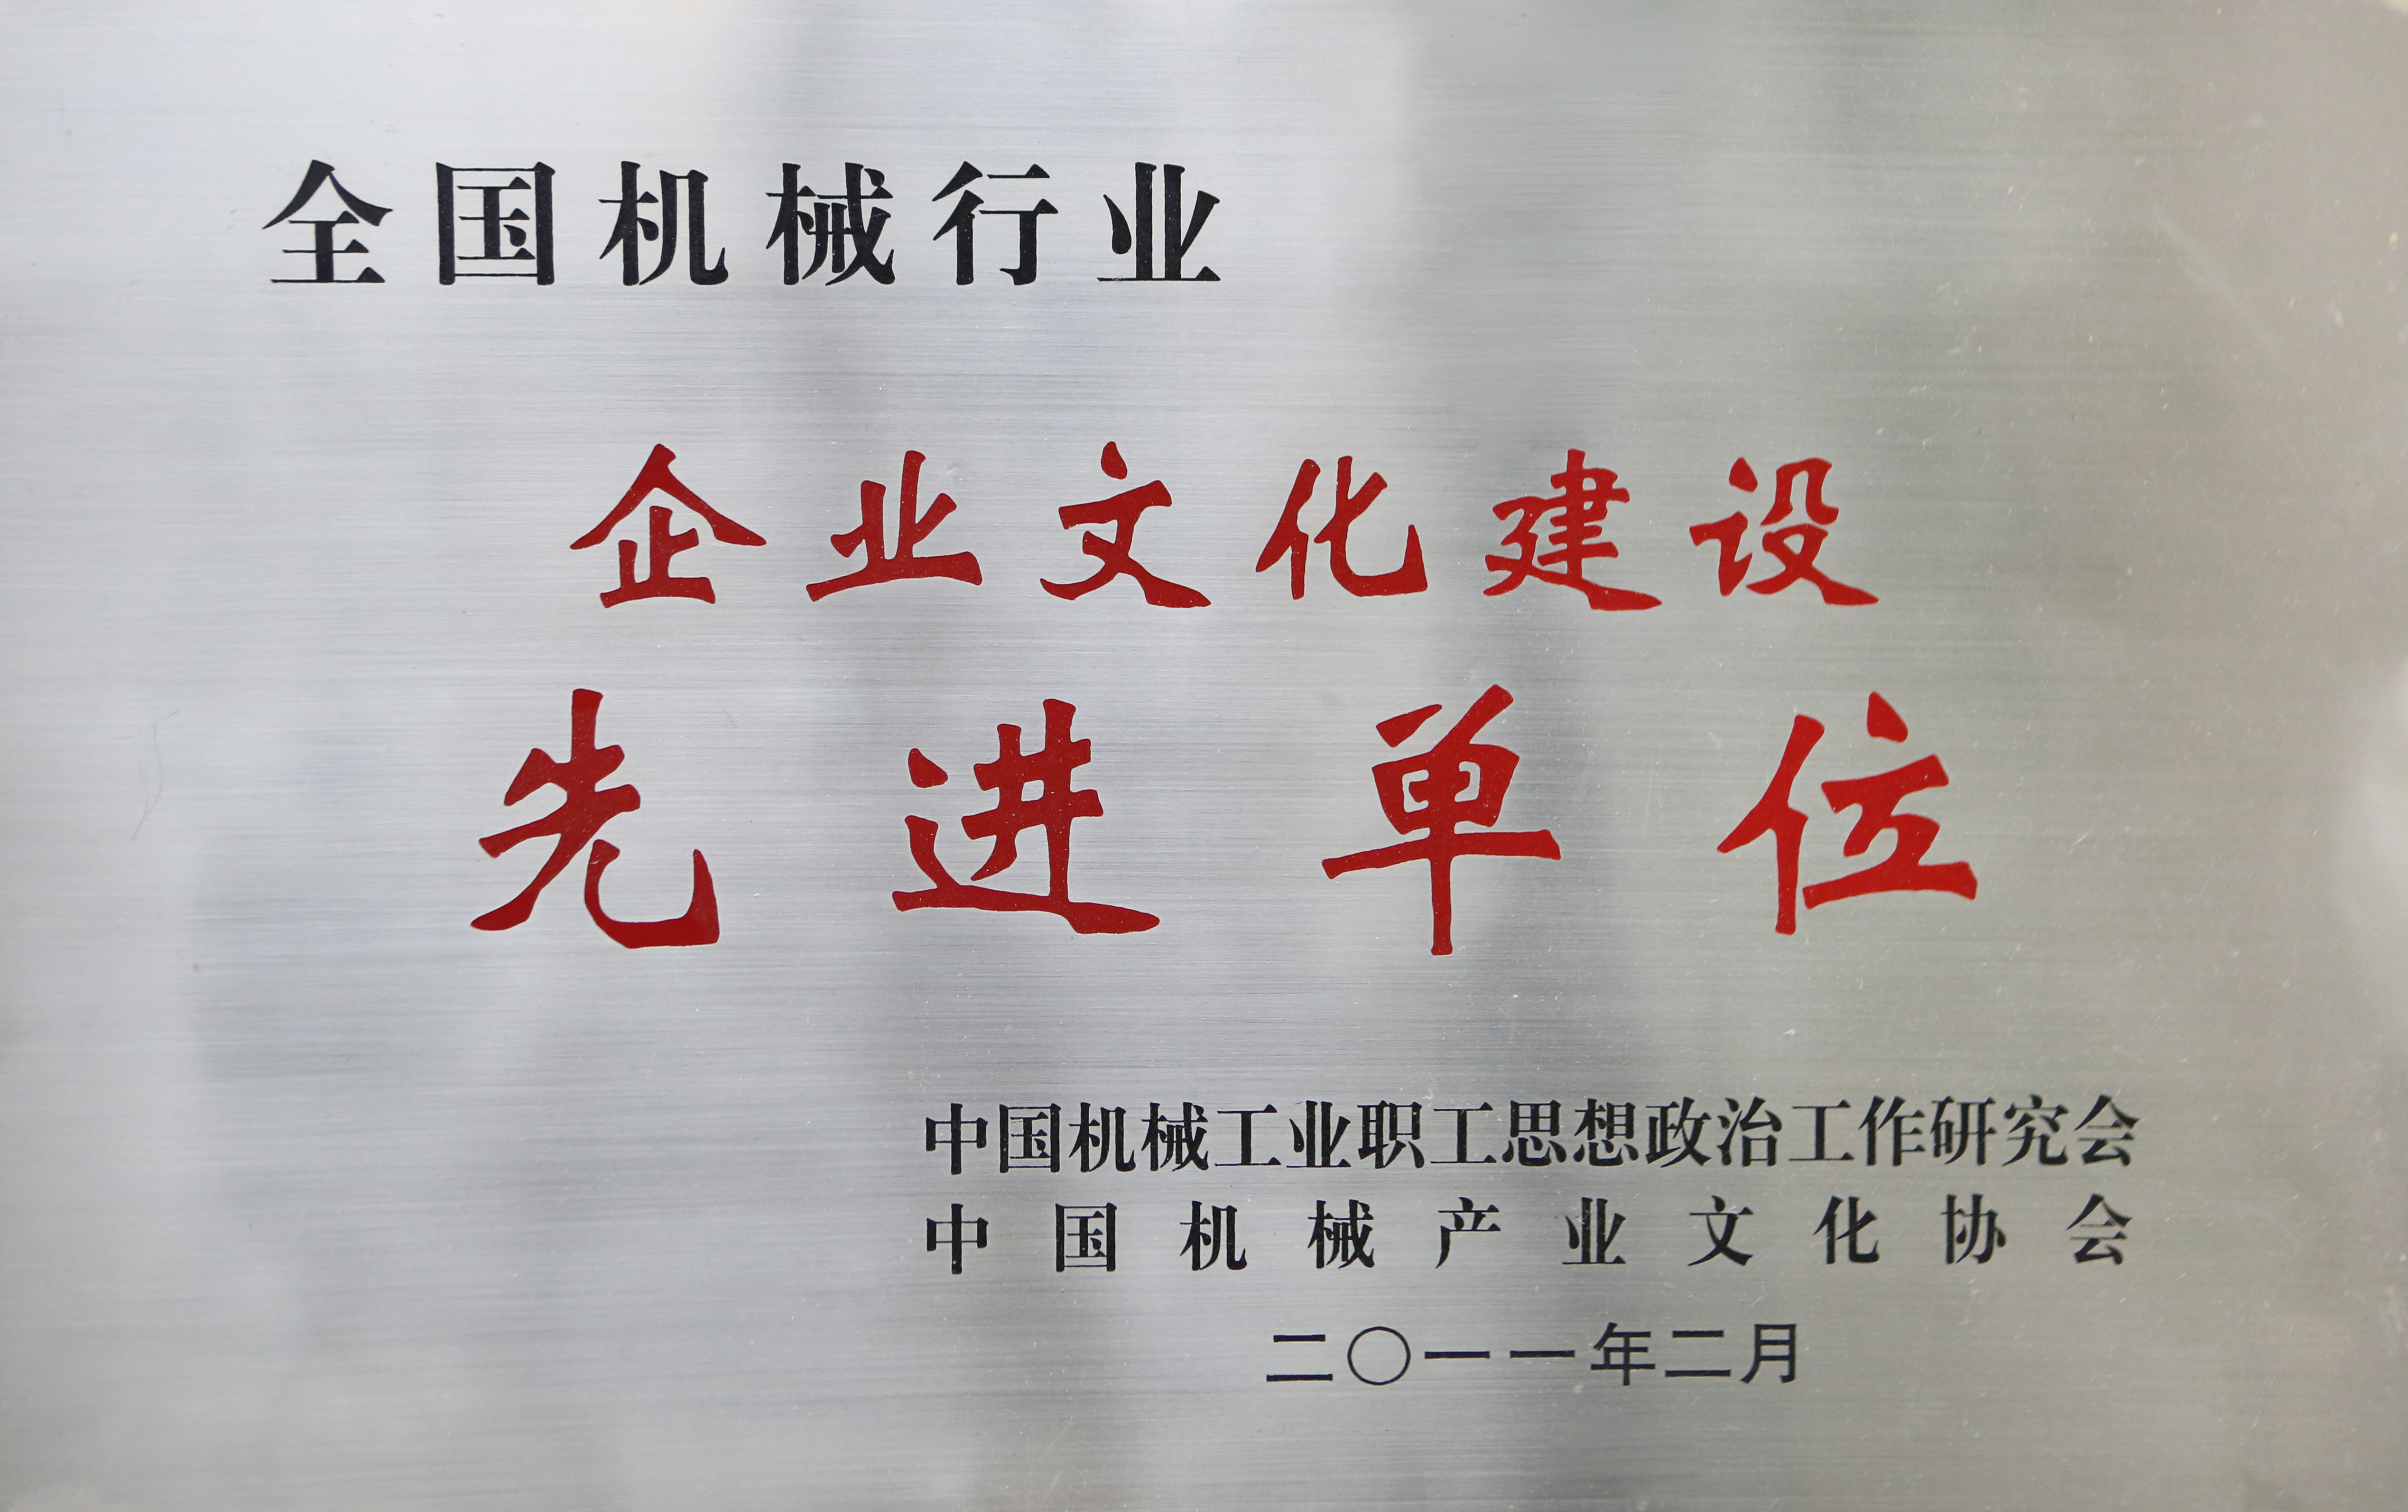 全国机械行业
企业文化建设
先进单位
中国机械工业职工思想政治工作研究会
中国机械产业文化协会
二〇一一年二月